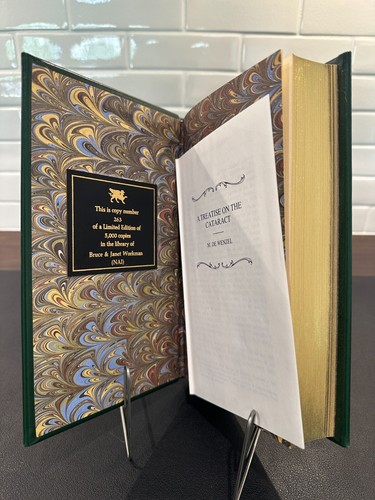 This is copy number
263
of a Limited Edition of
5,000 copies
in the library of
Bruce & Janet Workman
(NAJ)
A TREATISE ON THE
CATARACT
M. DE WENZEL